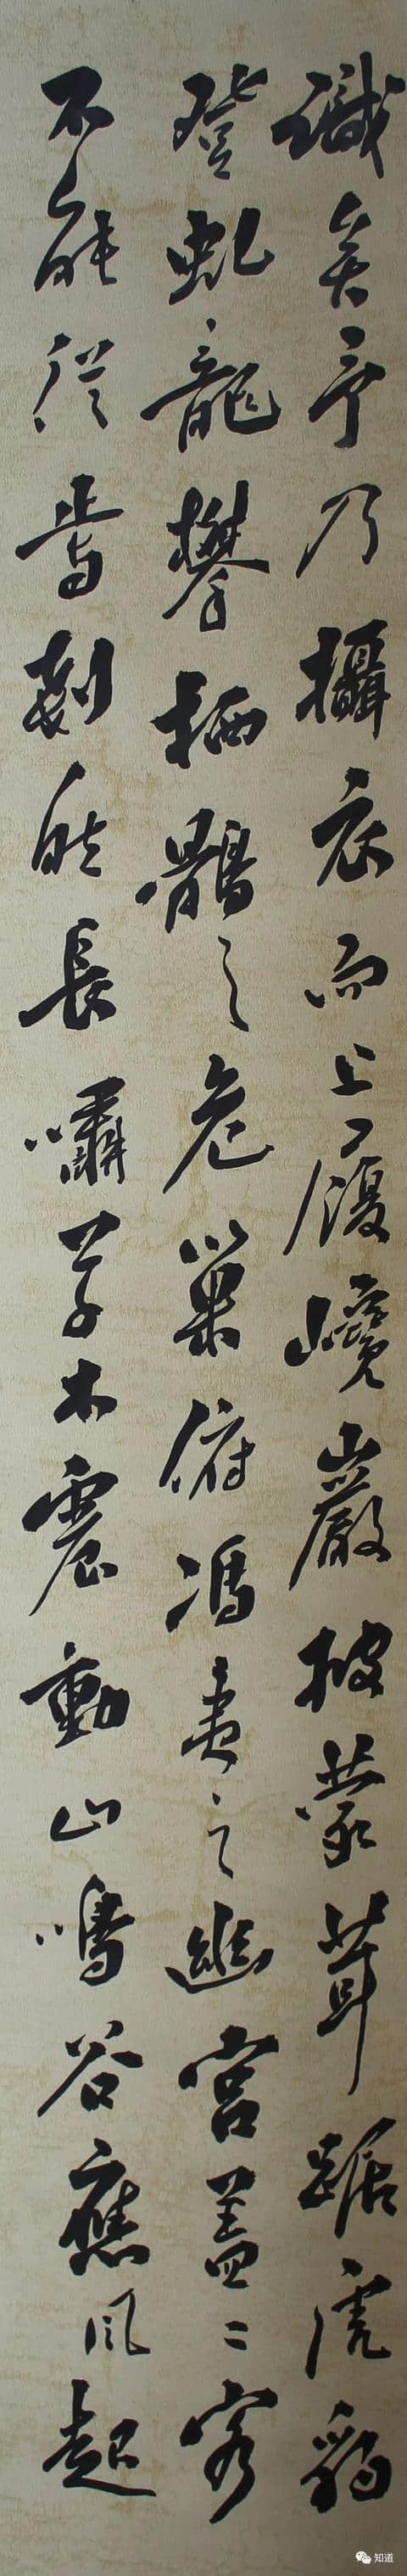 識矣予乃攝衣而上履巉巖披蒙茸踞虎豹
登虬龍攀栖鶻之危巢俯馮夷之幽宮蓋二客
不能從焉劃然長嘯草木震動山鳴谷應風起
知道